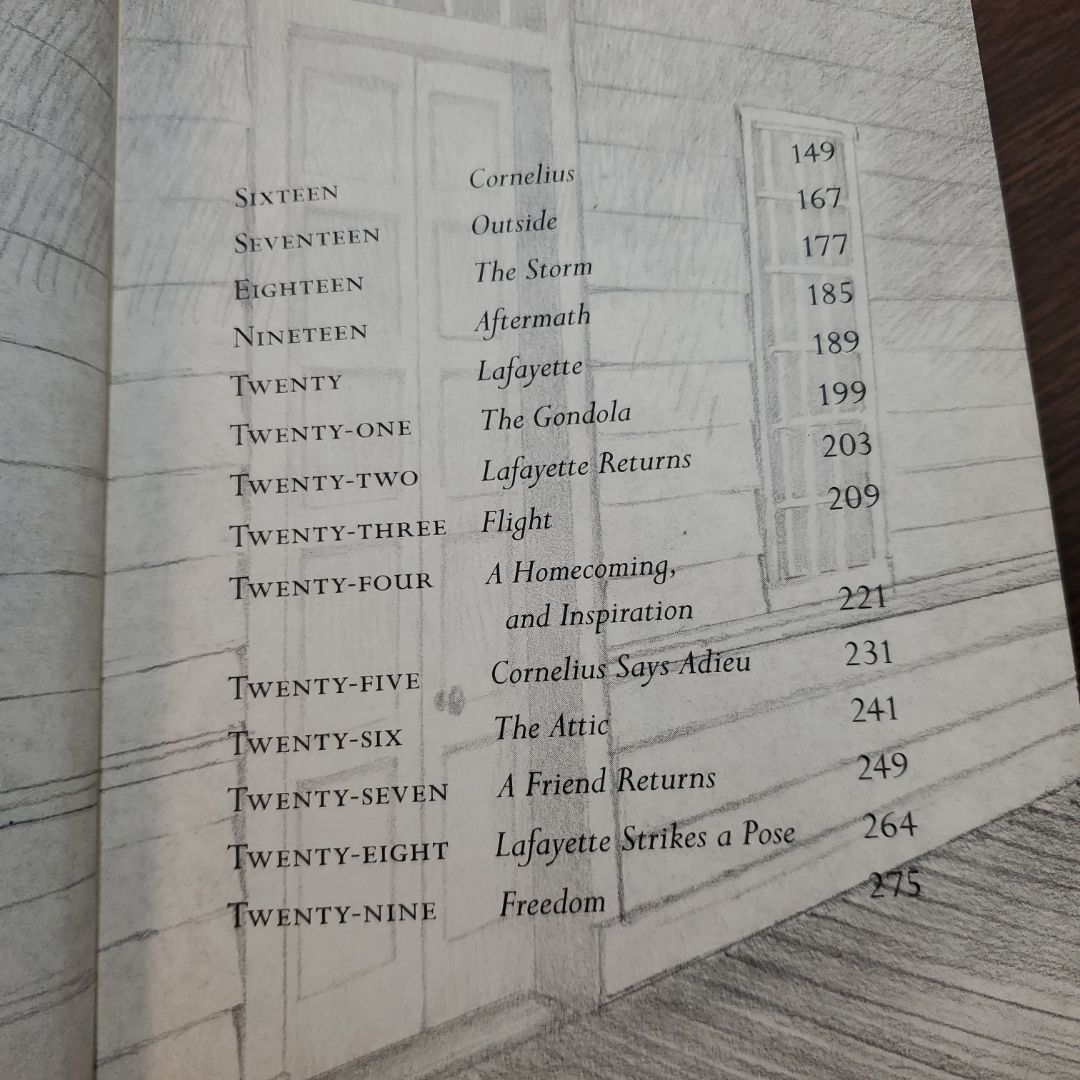 SIXTEEN Cornelius 149
SEVENTEEN Outside 167
EIGHTEEN The Storm 177
NINETEEN Aftermath 185
TWENTY Lafayette 189
TWENTY-ONE The Gondola 199
TWENTY-TWO Lafayette Returns 203
TWENTY-THREE Flight 209
TWENTY-FOUR A Homecoming,
and Inspiration 221
TWENTY-FIVE Cornelius Says Adieu 231
TWENTY-SIX The Attic 241
TWENTY-SEVEN A Friend Returns 249
TWENTY-EIGHT Lafayette Strikes a Pose 264
TWENTY-NINE Freedom 275